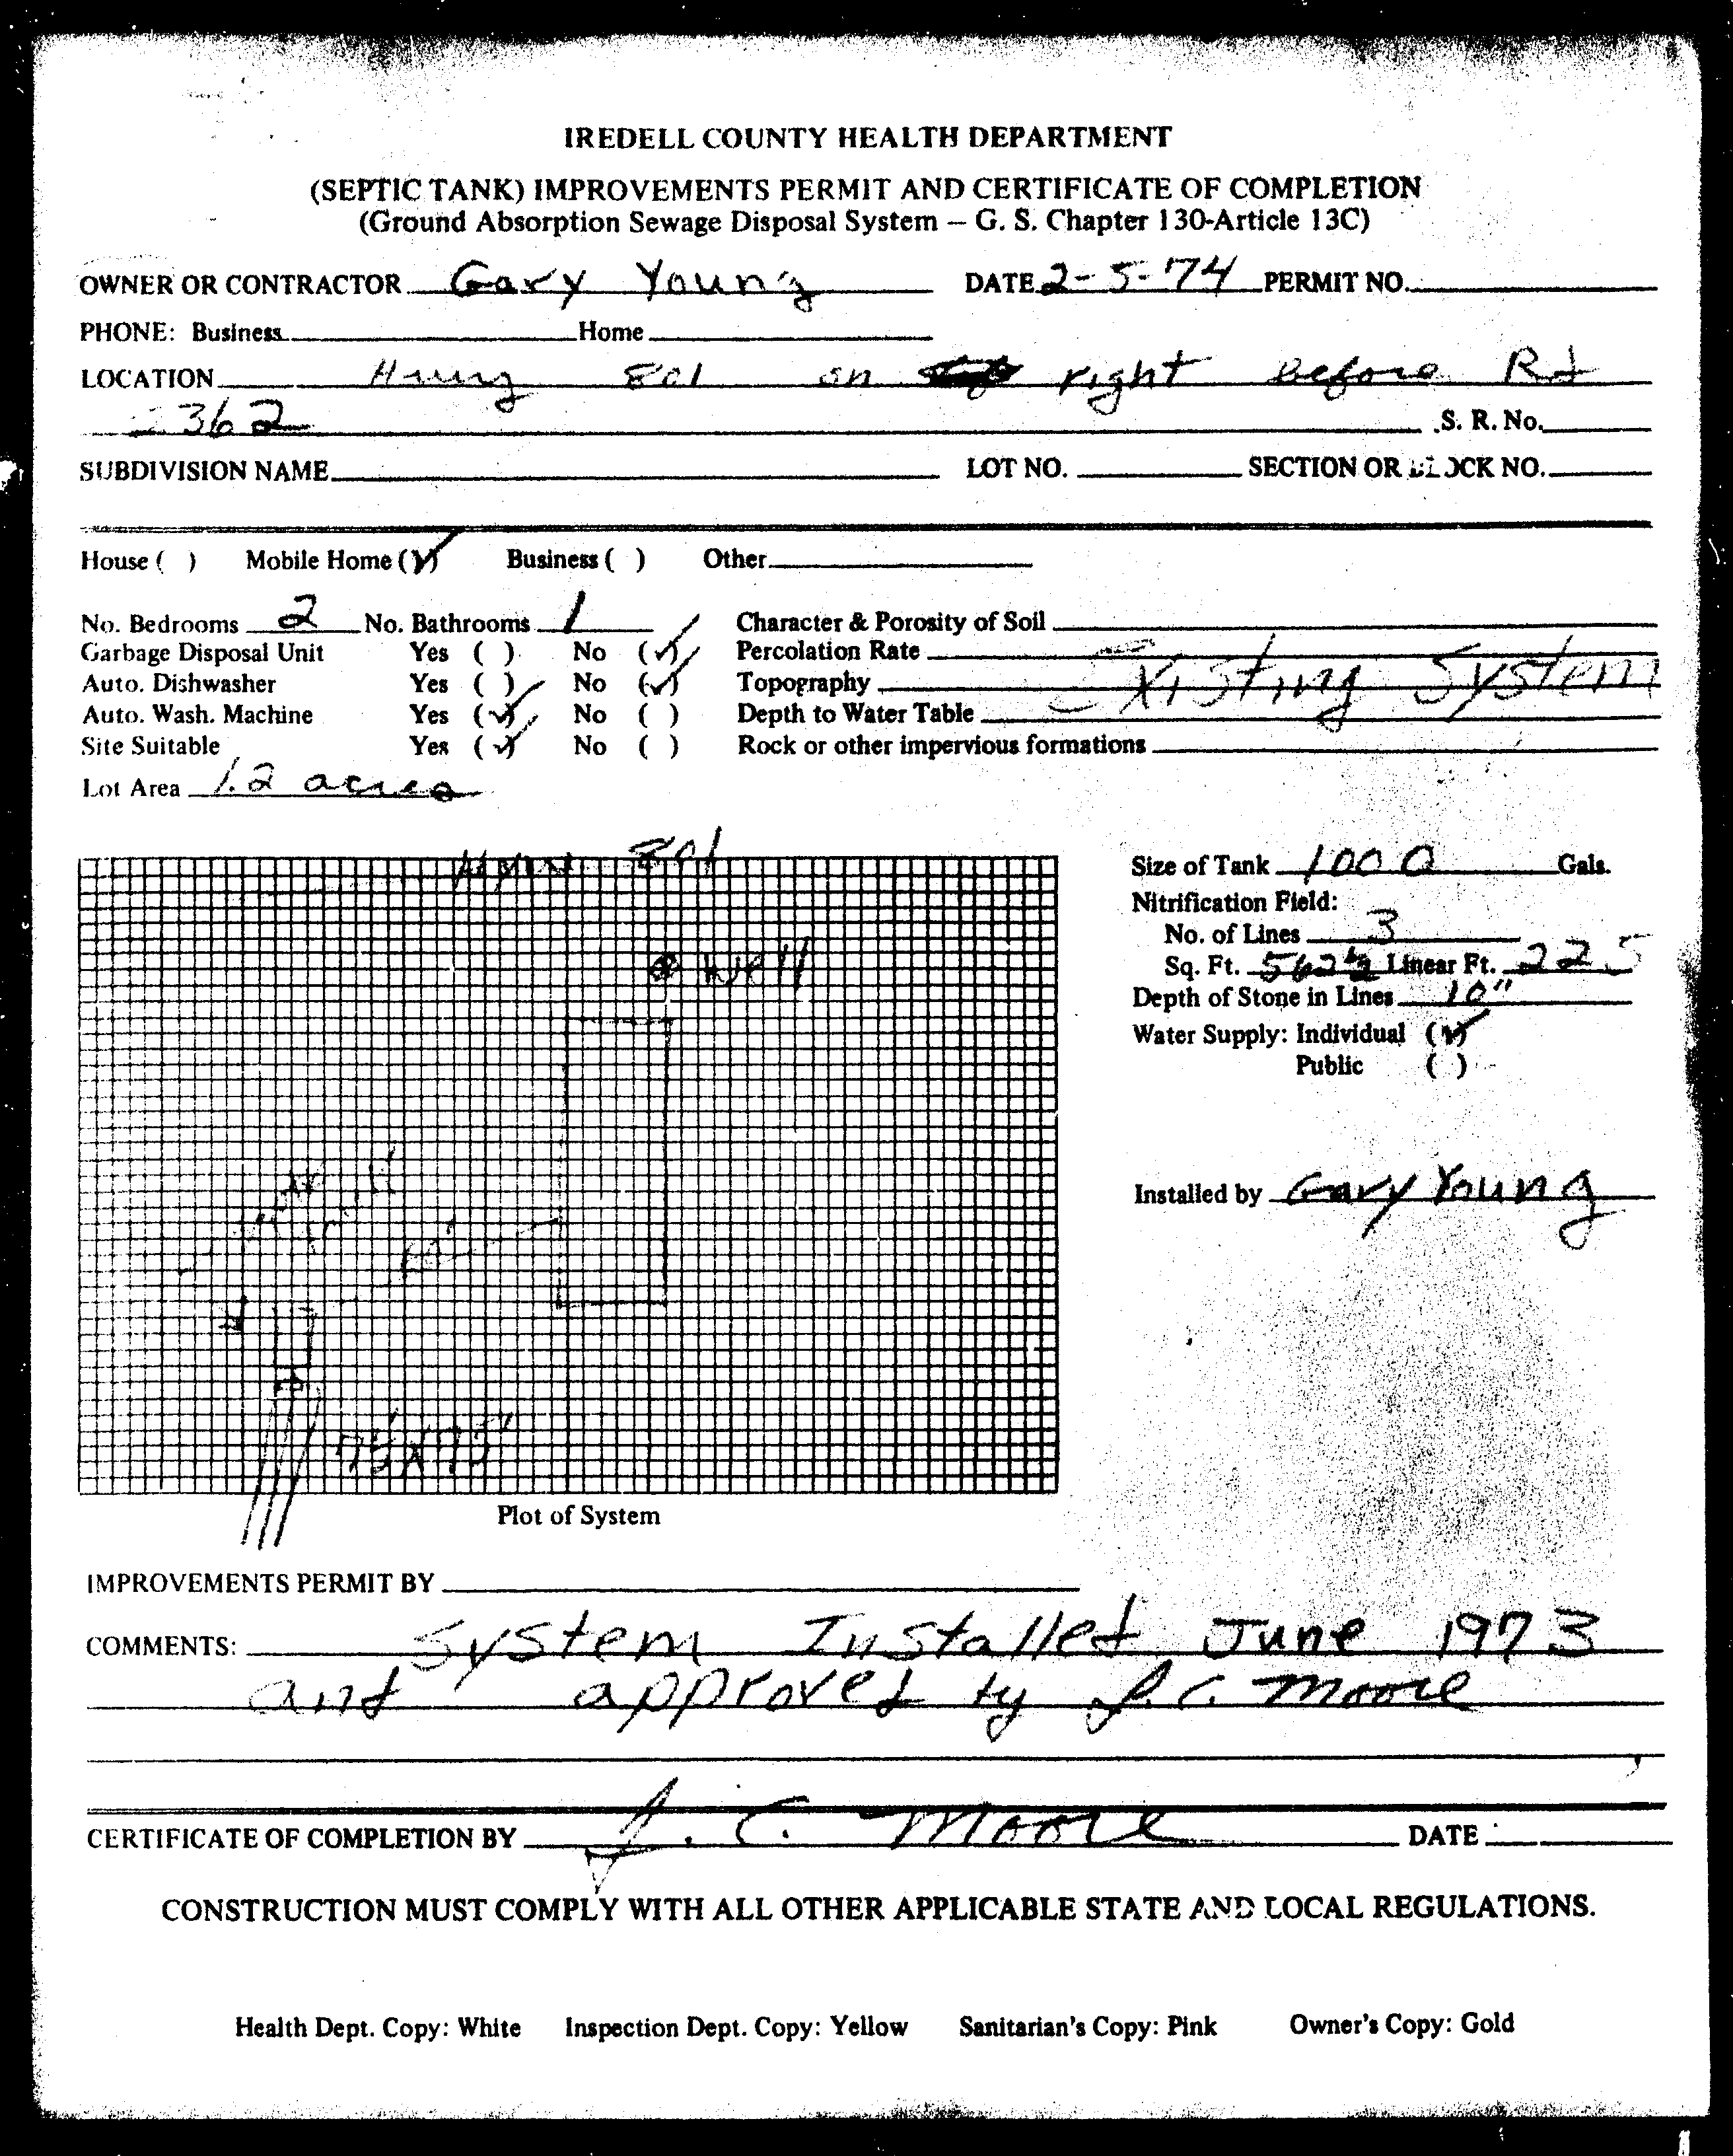 IREDELL COUNTY HEALTH DEPARTMENT
(SEPTIC TANK) IMPROVEMENTS PERMIT AND CERTIFICATE OF COMPLETION
(Ground Absorption Sewage Disposal System – G. S. Chapter 130-Article 13C)
OWNER OR CONTRACTOR Gary Young DATE 2-5-'74 PERMIT NO.
PHONE: Business Home
LOCATION 801 on right Before Rd
362 S. R. No.
SUBDIVISION NAME LOT NO. SECTION OR BLOCK NO.
House ( ) Mobile Home (✓) Business ( ) Other
No. Bedrooms 2 No. Bathrooms 1 Character & Porosity of Soil
Garbage Disposal Unit Yes ( ) No (✓) Percolation Rate
Existing System
Auto. Dishwasher Yes ( ) No (✓) Topography
Auto. Wash. Machine Yes (✓) No ( ) Depth to Water Table
Site Suitable Yes (✓) No ( ) Rock or other impervious formations
Lot Area 1.2 acres
801
Size of Tank 1000 Gals.
Nitrification Field:
No. of Lines 3
Well
Sq. Ft. 562½ Linear Ft. 225
Depth of Stone in Lines 10"
Water Supply: Individual (✓)
Public ( )
Installed by Gary Young
60'
75'X75'
Plot of System
IMPROVEMENTS PERMIT BY
COMMENTS: System Installed June 1973
and approved by J. C. Moore
CERTIFICATE OF COMPLETION BY J. C. Moore DATE
CONSTRUCTION MUST COMPLY WITH ALL OTHER APPLICABLE STATE AND LOCAL REGULATIONS.
Health Dept. Copy: White Inspection Dept. Copy: Yellow Sanitarian's Copy: Pink Owner's Copy: Gold